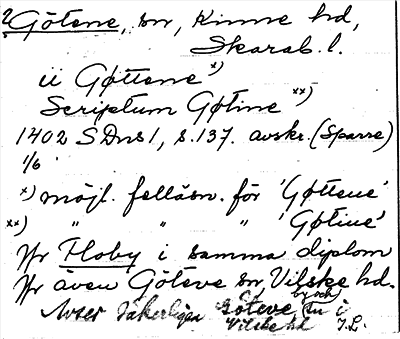 ? Götene, sn, Kinne hd,
Skarab. l.
ii Gøttene x)
Scriptum Gøtine xx)
1402 SDns 1, s. 137. avskr. (Sparre)
1/6
x) möjl. felläsn. för 'Gøtteue'
xx) " " " 'Gøtiue'
Jfr Floby i samma diplom
Jfr även Göteve sn, Vilske hd.
Avser säkerligen Göteve by och sn i
Vilske hd J.L.